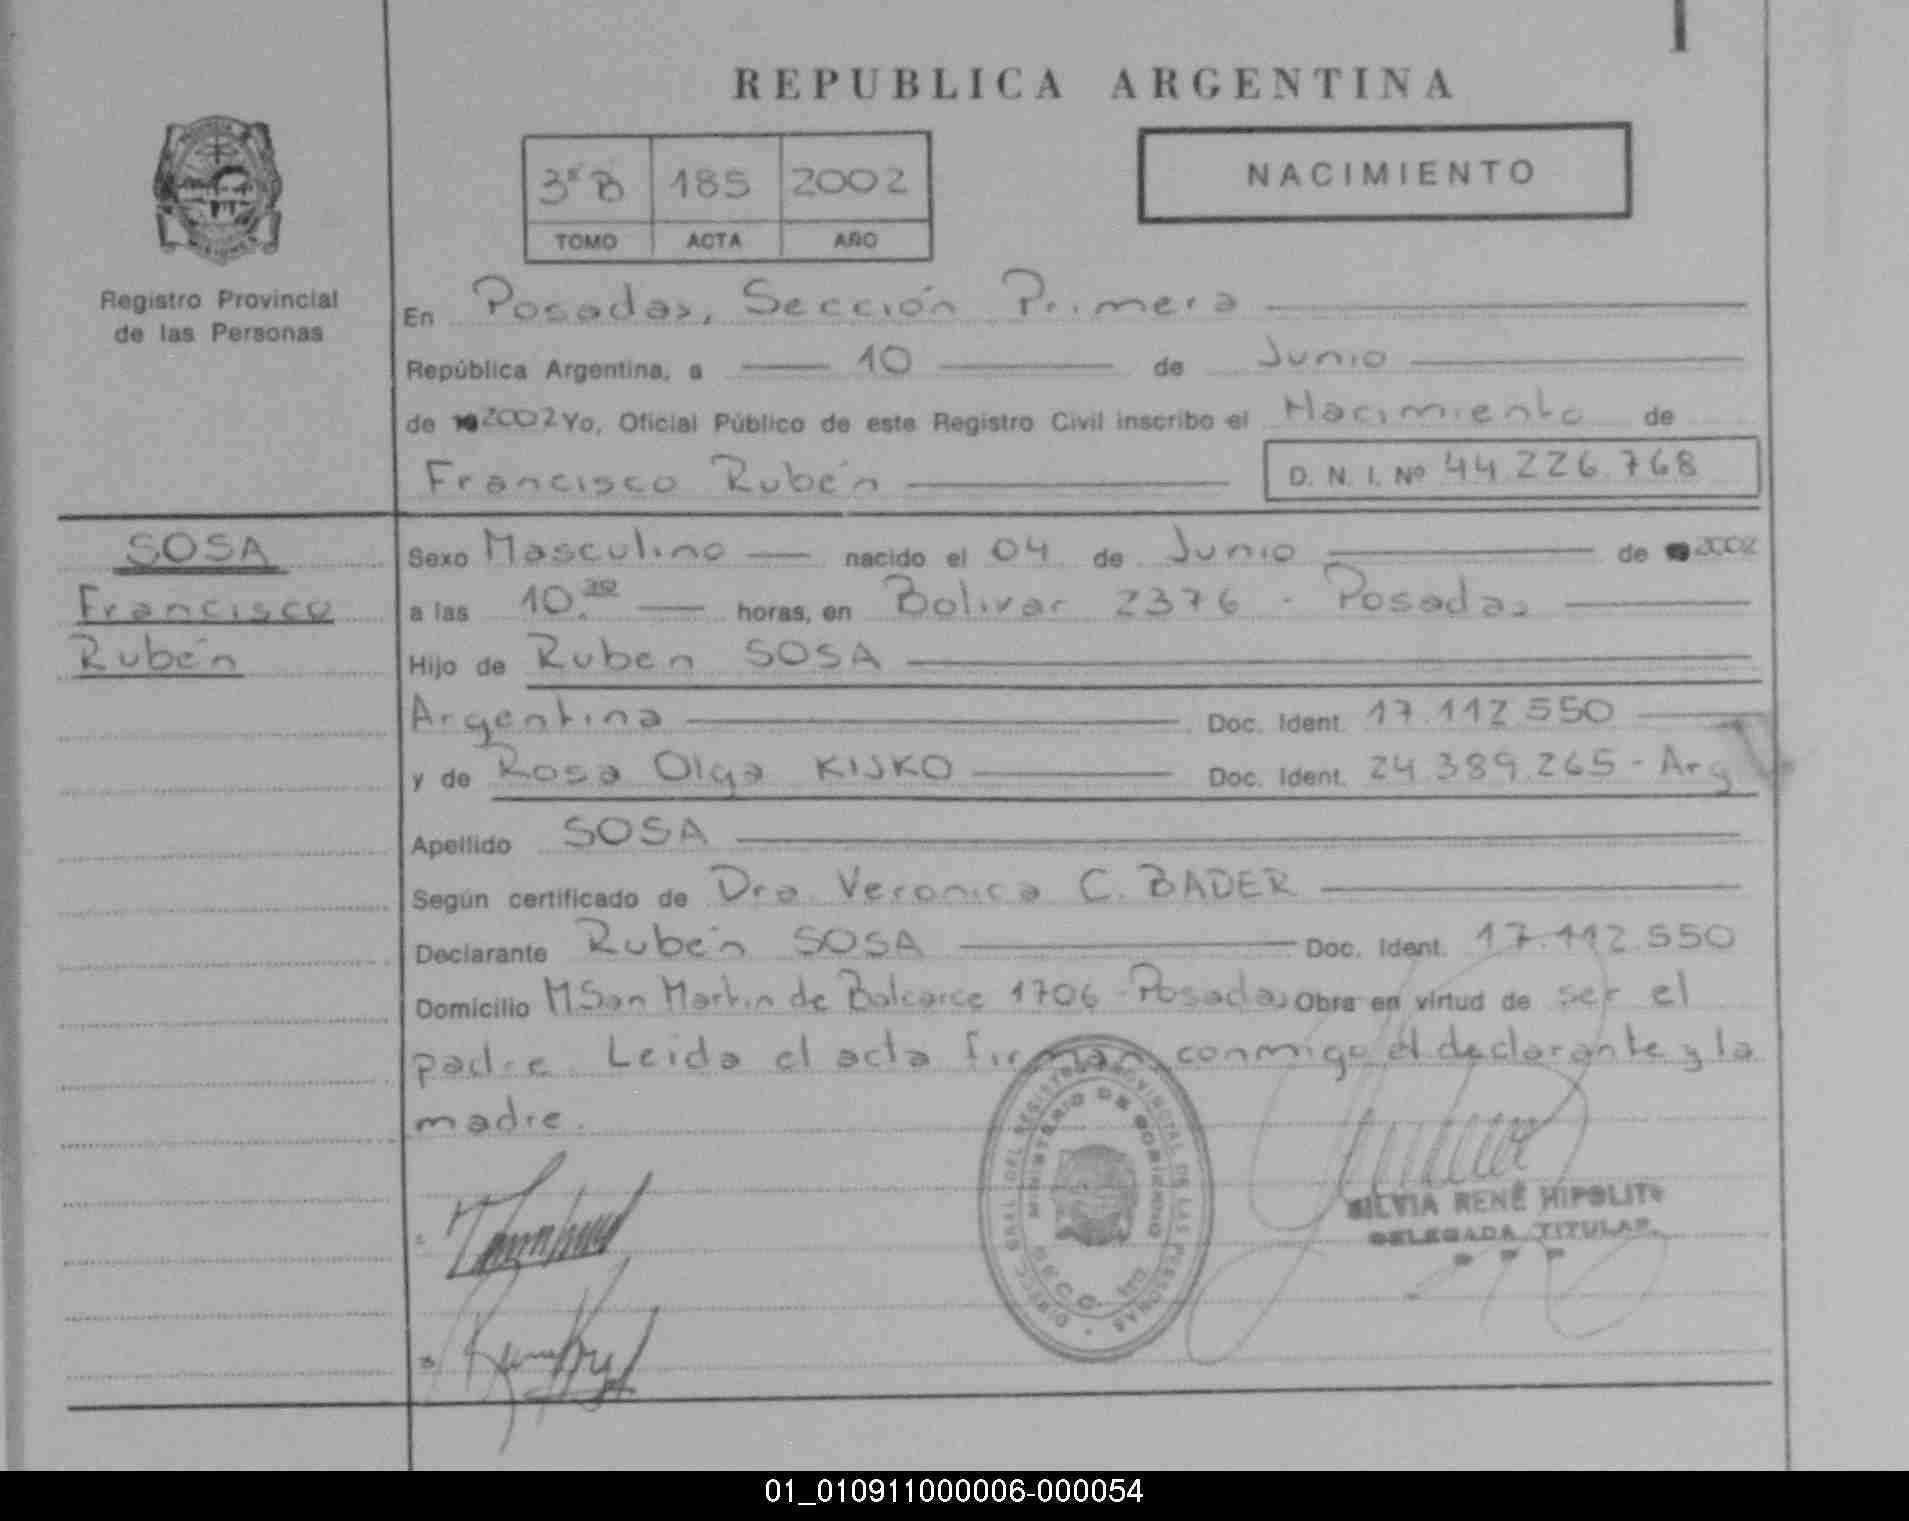 REPUBLICA ARGENTINA
3º B 185 2002
TOMO ACTA AÑO
NACIMIENTO
Registro Provincial
de las Personas
En Posadas, Sección Primera
República Argentina, a 10 de Junio
de 2002 Yo, Oficial Público de este Registro Civil inscribo el Nacimiento de
Francisco Rubén D. N. I. Nº 44.226.768
SOSA
Francisco
Rubén
Sexo Masculino nacido el 04 de Junio de 2002
a las 10. horas, en Bolivar 2376 - Posadas
Hijo de Ruben SOSA
Argentina Doc. Ident. 17.112.550
y de Rosa Olga KISKO Doc. Ident. 24.389.265 - Arg
Apellido SOSA
Según certificado de Dra Veronica C. BADER
Declarante Rubén SOSA Doc. Ident. 17.112.550
Domicilio M San Martin de Balcarce 1706 - Posadas Obra en virtud de ser el
padre. Leida el acta firman conmigo el declarante y la
madre.
DIREC. GRAL. DEL REGISTRO PROVINCIAL DE LAS PERSONAS
MINISTERIO DE GOBIERNO
SILVIA RENÉ HIPOLITO
DELEGADA TITULAR
01_010911000006-000054